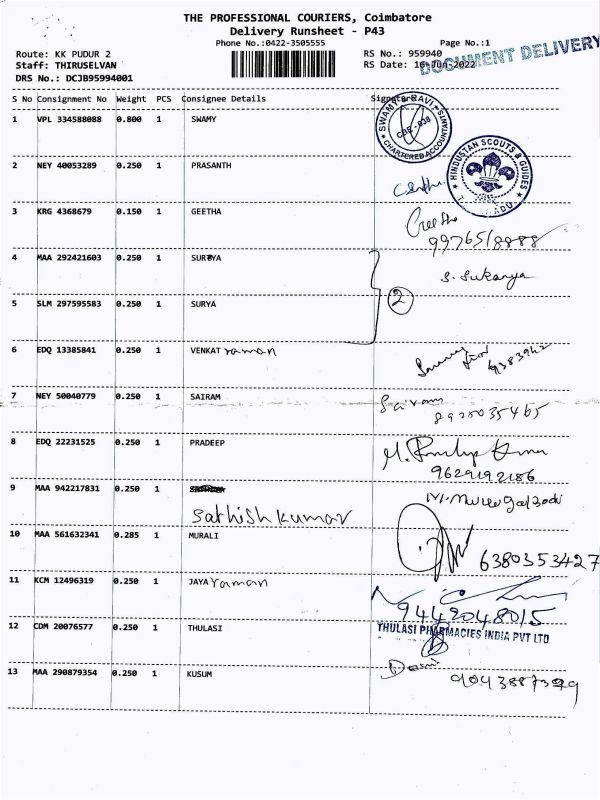 THE PROFESSIONAL COURIERS, Coimbatore
Delivery Runsheet - P43
Phone No.:0422-3505555
Page No.:1
Route: KK PUDUR 2
RS No.: 959940
Staff: THIRUSELVAN
RS Date: 16-Jun-2022
DOCUMENT DELIVERY
DRS No.: DCJB95994001
S No Consignment No Weight PCS Consignee Details Signature
1 VPL 334588088 0.800 1 SWAMY
SWAMY & RAVI CBE - 038 CHARTERED ACCOUNTANTS
2 NEY 40053289 0.250 1 PRASANTH
HINDUSTAN SCOUTS & GUIDES
3 KRG 4368679 0.150 1 GEETHA Geetha
9976518888
4 MAA 292421603 0.250 1 SURYA S. Sukanya
2
5 SLM 297595583 0.250 1 SURYA
6 EDQ 13385841 0.250 1 VENKAT raman
7 NEY 50040779 0.250 1 SAIRAM Sairam
8925035465
8 EDQ 22231525 0.250 1 PRADEEP
9629192186
9 MAA 942217831 0.250 1
Sathish kumar
10 MAA 561632341 0.285 1 MURALI
6380353427
11 KCM 12496319 0.250 1 JAYA raman
9442048015
12 CDM 20076577 0.250 1 THULASI THULASI PHARMACIES INDIA PVT LTD
13 MAA 290879354 0.250 1 KUSUM
9043887399